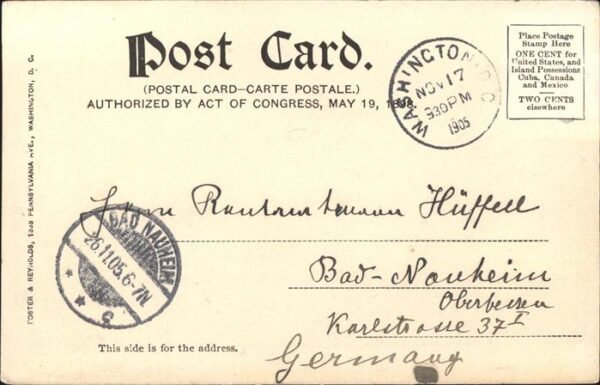 Post Card.
(POSTAL CARD—CARTE POSTALE.)
AUTHORIZED BY ACT OF CONGRESS, MAY 19, 1898.
WASHINGTON, D.C.
NOV 17
930PM
1905
Place Postage
Stamp Here
ONE CENT for
United States, and
Island Possessions
Cuba, Canada
and Mexico
TWO CENTS
elsewhere
FOSTER & REYNOLDS, 1333 PENNSYLVANIA AVE., WASHINGTON, D. C.
Hüffell
BAD NAUHEIM
26.11.05.6-7N
* * c
Bad-Nauheim
Oberhessen
Karlstrasse 37 I
Germany
This side is for the address.